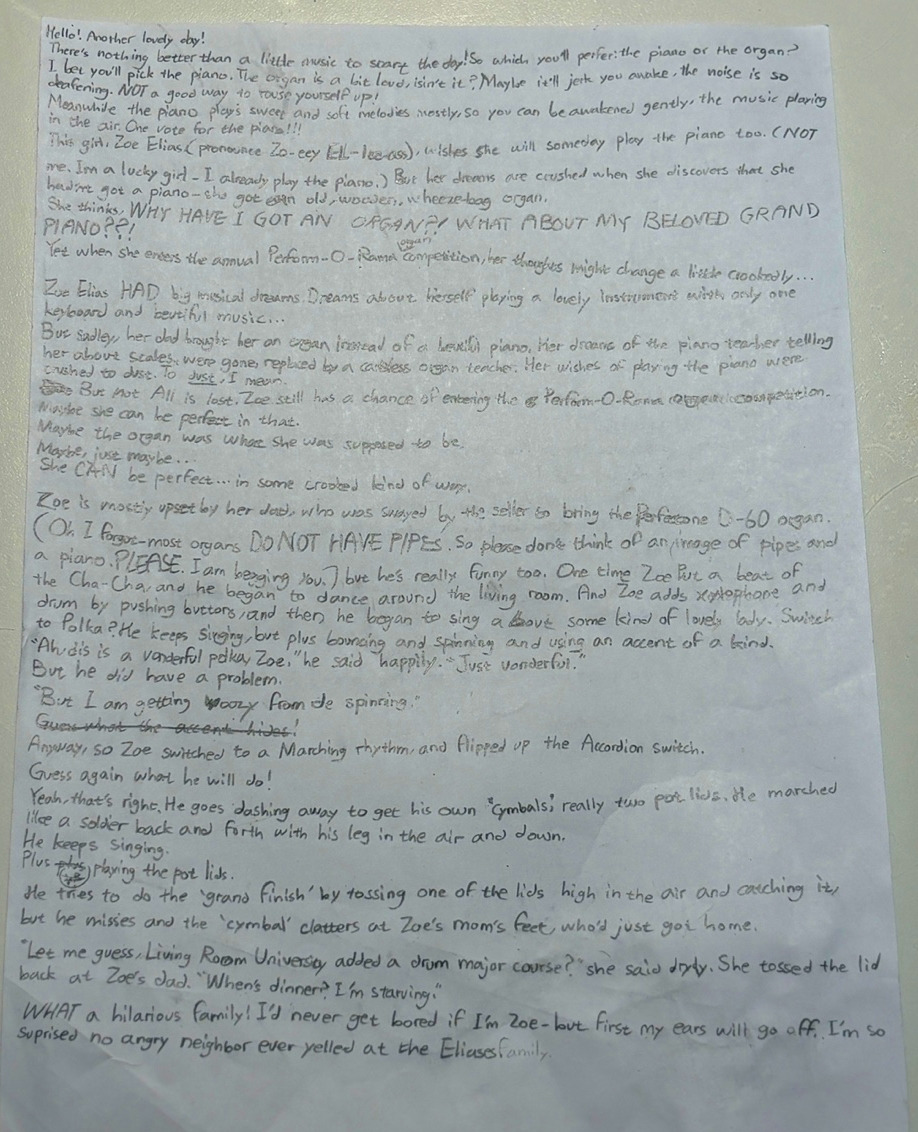 Hello! Another lovely day!
There's nothing better than a little music to start the day! So which you'll perfer: the piano or the organ?
I bet you'll pick the piano. The organ is a bit loud, isin't it? Maybe it'll jerk you awake, the noise is so
deafening. NOT a good way to rouse yourself up!
Meanwhile the piano plays sweet and soft melodies mostly, so you can be awakened gently, the music playing
in the air. One vote for the piano!!!
This girl, Zoe Elias (pronounce Zo-eey EL-lee-ass), wishes she will someday play the piano too. (NOT
me. I'm a lucky girl - I already play the piano.) But her dreams are crushed when she discovers that she
hadn't got a piano - she got an old, wooden, wheeze-bag organ.
She thinks, WHY HAVE I GOT AN ORGAN?! WHAT ABOUT MY BELOVED GRAND
PIANO??!
Yet when she enters the annual Perform-O-Rama organ competition, her thoughts might change a little crookedly...
Zoe Elias HAD big musical dreams. Dreams about herself playing a lovely instrument with only one
keyboard and beutiful music...
But sadley, her dad brought her an organ instead of a piano. Her dreams of the piano teacher telling
her about scales were gone, replaced by a careless organ teacher. Her wishes of playing the piano were
crushed to dust. To dust, I mean.
But not All is lost. Zoe still has a chance of entering the Perform-O-Rama competition.
Maybe she can be perfect in that.
Maybe the organ was what she was supposed to be.
Maybe, just maybe...
She CAN be perfect... in some crooked kind of way.
Zoe is mostly upset by her dad, who was swayed by the seller to bring the Perfectone D-60 organ.
(Oh, I forgot - most organs DO NOT HAVE PIPES. So please don't think of an image of pipes and
a piano. PLEASE. I am begging you.) but he's really funny too. One time Zoe Put a beat of
the Cha-Cha, and he began to dance around the living room. And Zoe adds xylophone and
drum by pushing buttons, and then he began to sing about some kind of lovely lady. Switch
to Polka? He keeps singing, but plus bouncing and spinning and using an accent of a kind.
"Ah, dis is a vonderful polka, Zoe," he said happily. "Just vonderful."
But he did have a problem.
"But I am getting woozy from de spinning."
Guess what the accent hides!
Anyway, so Zoe switched to a Marching rhythm, and flipped up the Accordion switch.
Guess again what he will do!
Yeah, that's right. He goes dashing away to get his own 'cymbals', really two pot lids. He marched
like a soldier back and forth with his leg in the air and down.
He keeps singing.
Plus playing the pot lids.
He tries to do the 'grand finish' by tossing one of the lids high in the air and catching it,
but he misses and the 'cymbal' clatters at Zoe's mom's feet, who'd just got home.
"Let me guess, Living Room University added a drum major course?" she said dryly. She tossed the lid
back at Zoe's dad. "When's dinner? I'm starving."
WHAT a hilarious family! I'd never get bored if I'm Zoe - but first my ears will go off. I'm so
suprised no angry neighbor ever yelled at the Eliases family.